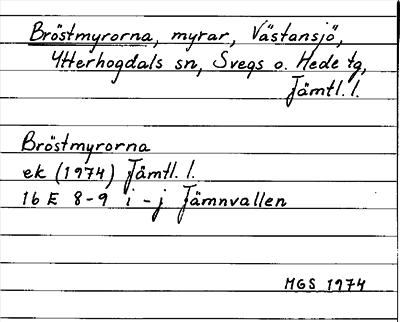 Bröstmyrorna, myrar, Västansjö,
Ytterhogdals sn, Svegs o. Hede tg,
Jämtl. l.
Bröstmyrorna
ek (1974) Jämtl. l.
16 E 8-9 i - j Jämnvallen
MGS 1974